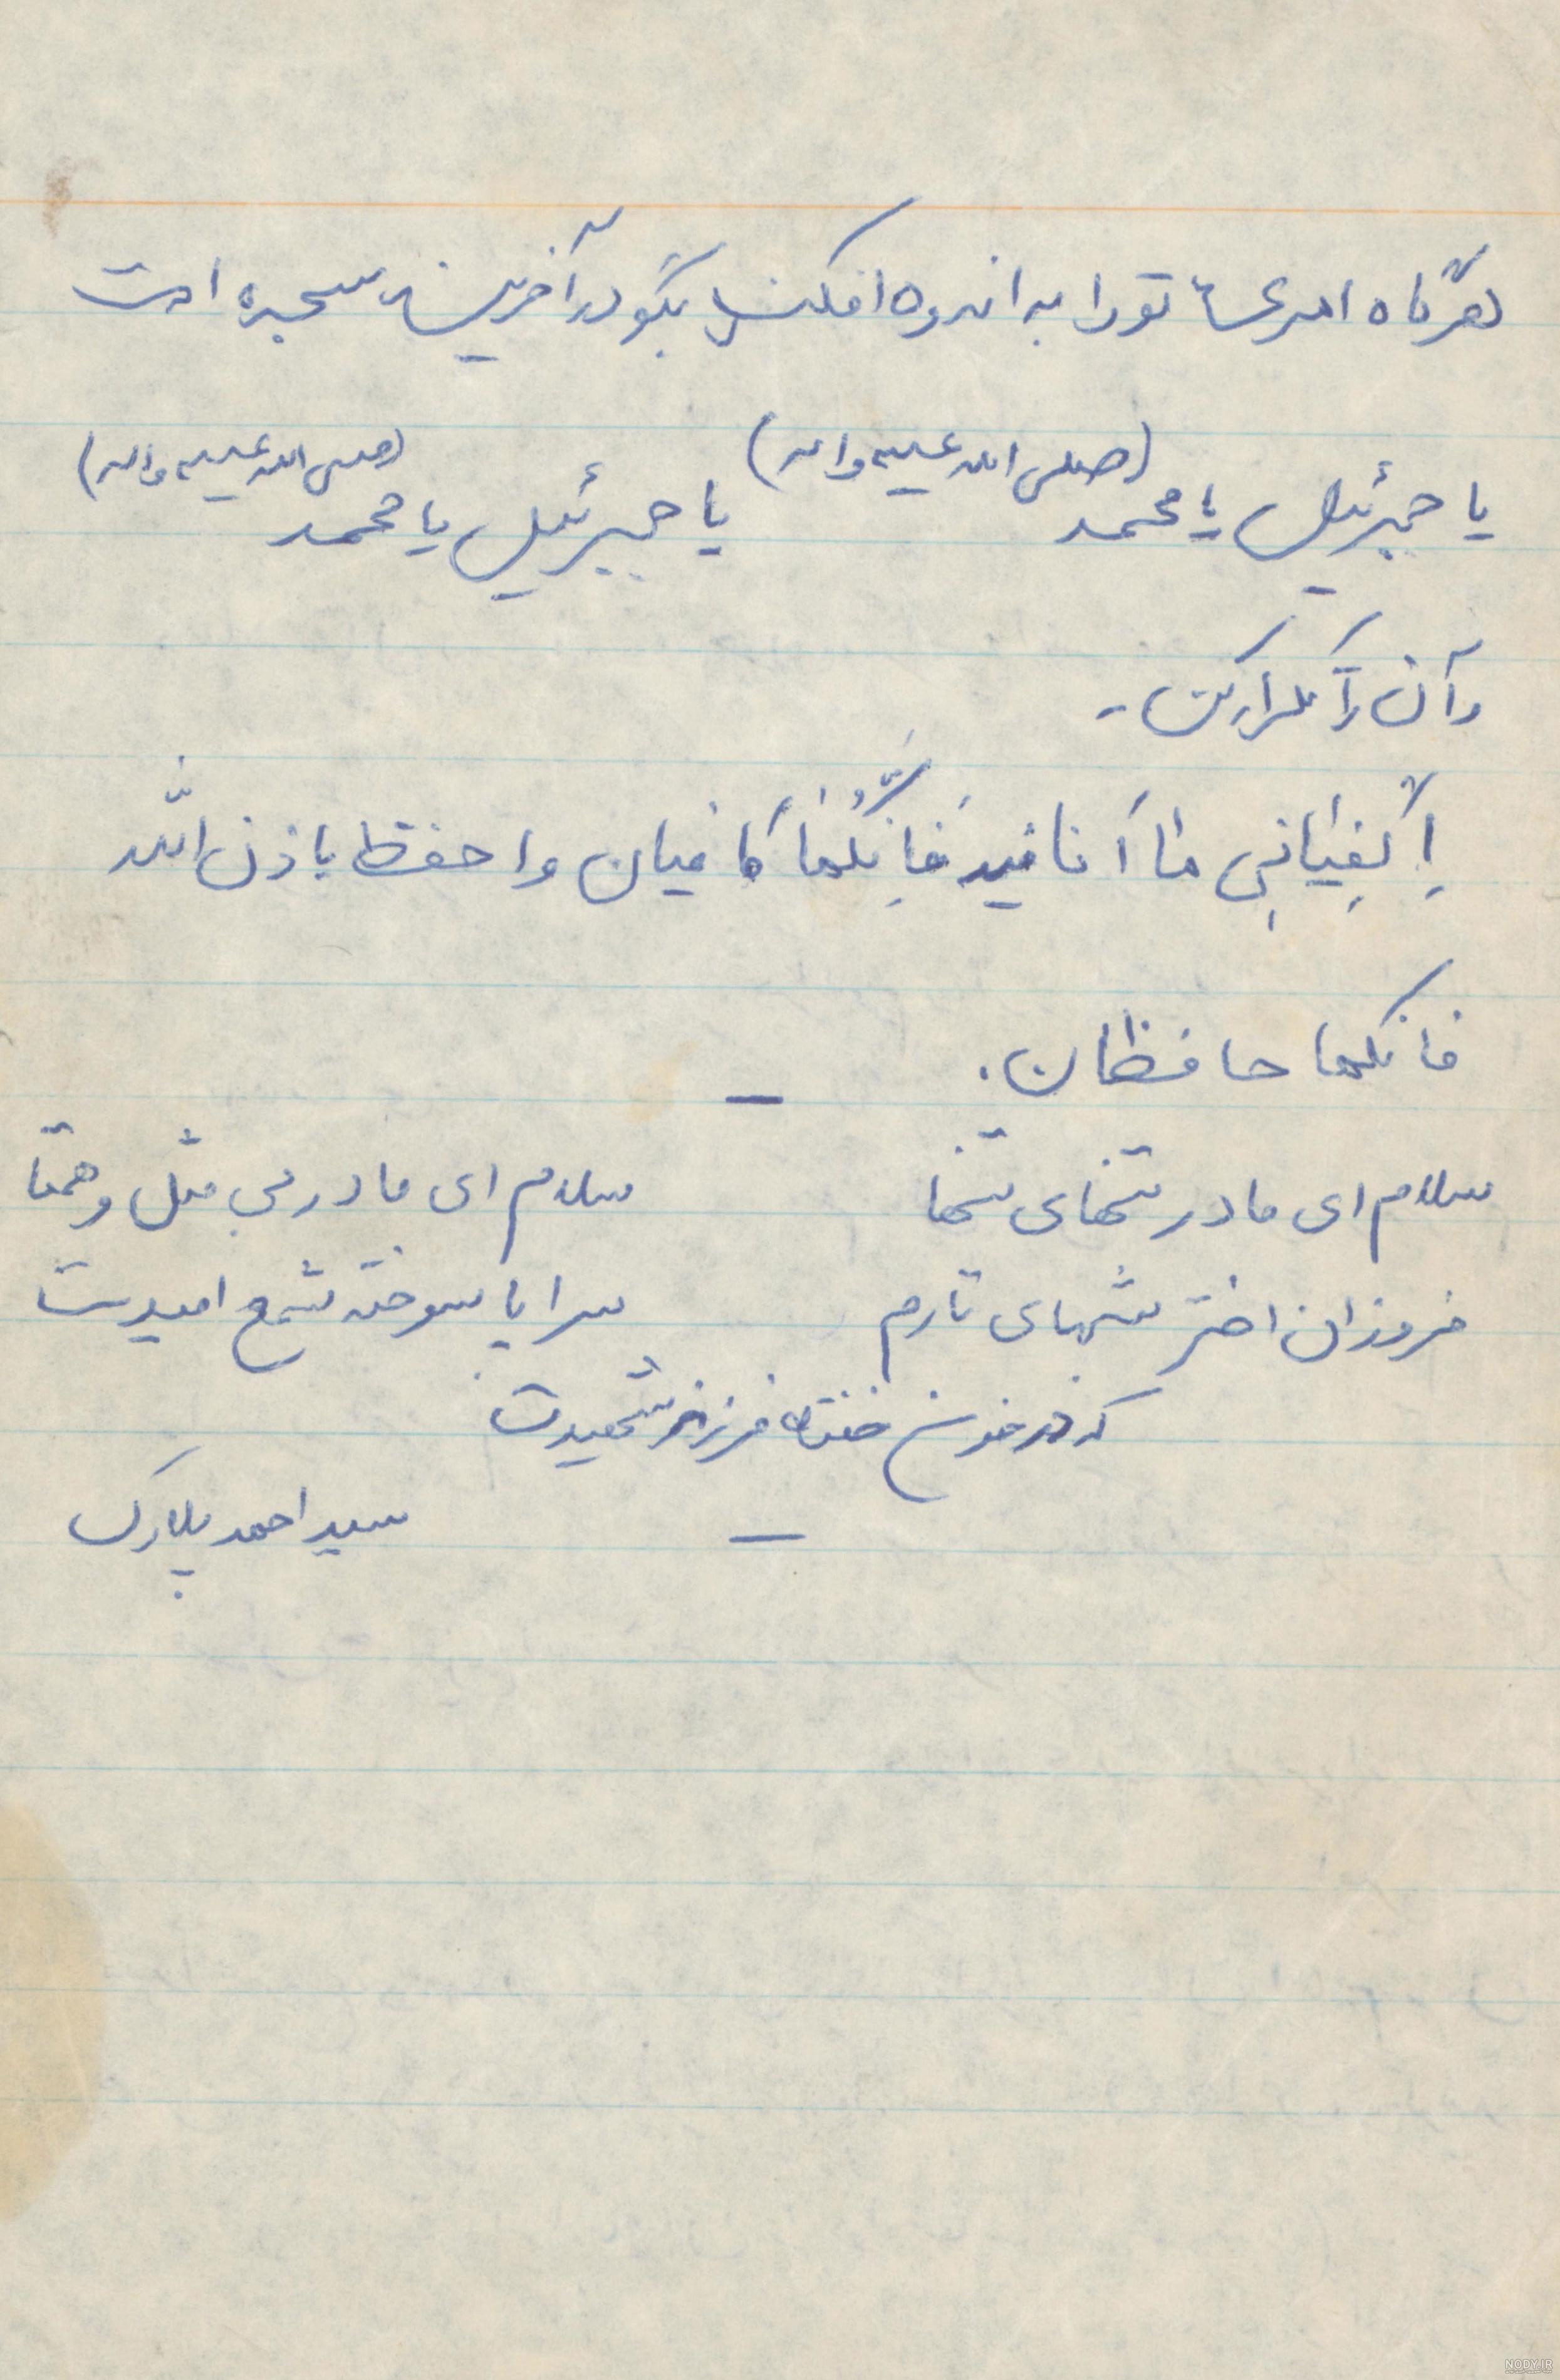 هرگاه امری تو را به اندوه افکند بگو در آخرین سجده ات
یا جبرئیل یا محمد (صلی الله علیه واله) یا جبرئیل یا محمد (صلی الله علیه واله)
و آن را تکرار کن -
اِکفِیٰانِی مٰا اَنَا فیه فَاِنَّکُمٰا کافیان واحفظ باذن اللّه
فانکما حافظان .
سلام ای مادر تنهای تنها سلام ای مادر بی مثل و همتا
فروزان اختر شبهای تارم سراپا سوخته شمع امیدت
که در خون خفته فرزند شهیدت
سید احمد پلارک
NODY.IR